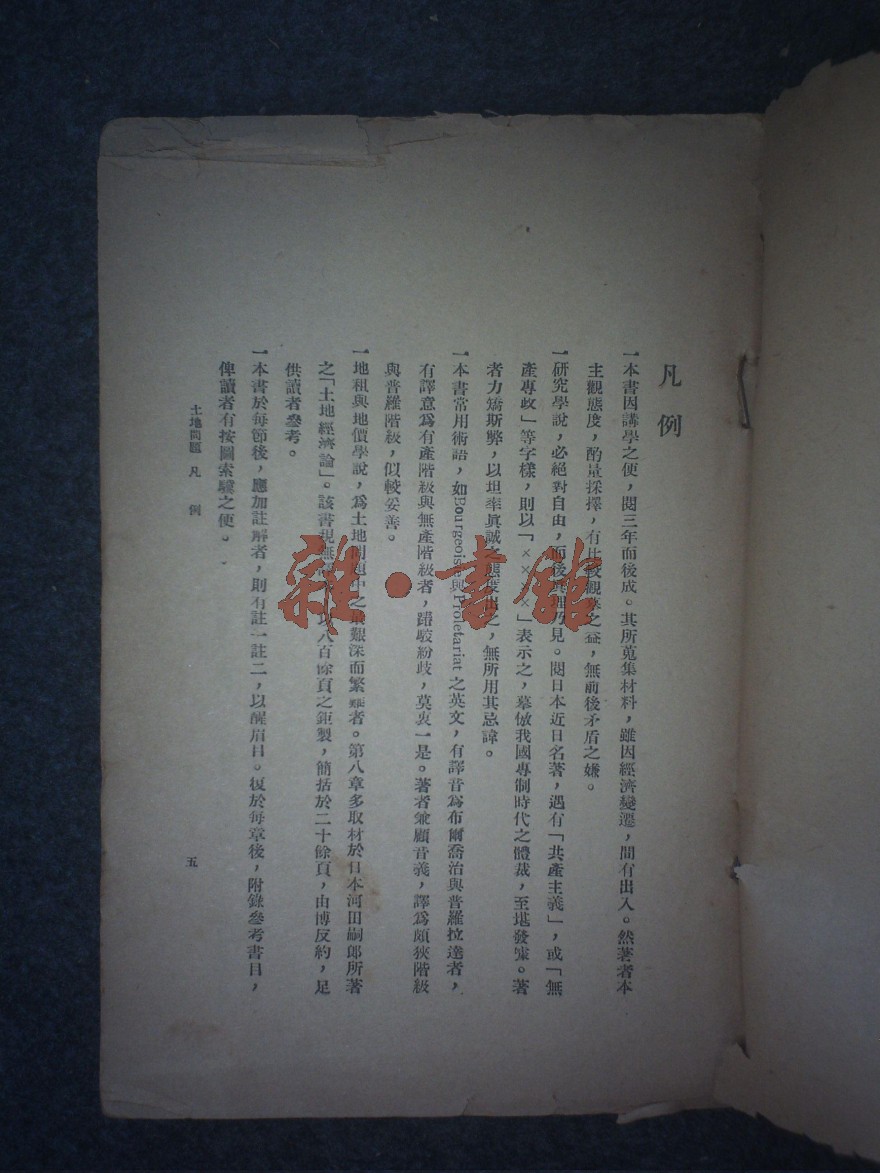 凡例
一本書因講學之便，閱三年而後成。其所蒐集材料，雖因經濟變遷，間有出入。然著者本
主觀態度，酌量採擇，有比較觀摹之益，無前後矛盾之嫌。
一研究學說，必絕對自由，而後眞理乃見。閱日本近日名著，遇有「共產主義」，或「無
產專政」等字樣，則以「××××」表示之，摹倣我國專制時代之體裁，至堪發噱。著
者力矯斯弊，以坦率眞誠之態度出之，無所用其忌諱。
一本書常用術語，如Bourgeoisie與Proletariat之英文，有譯音爲布爾喬治與普羅拉達者，
有譯意爲有產階級與無產階級者，踳駮紛歧，莫衷一是。著者兼顧音義，譯爲頗狹階級
與普羅階級，似較妥善。
一地租與地價學說，爲土地問題中之最艱深而繁難者。第八章多取材於日本河田嗣郎所著
之「土地經濟論」。該書現無 以八百餘頁之鉅製，簡括於二十餘頁，由博反約，足
供讀者參考。
一本書於每節後，應加註解者，則有註一註二，以醒眉目。復於每章後，附錄參考書目，
俾讀者有按圖索驥之便。
土地問題 凡例
五
雜·書館